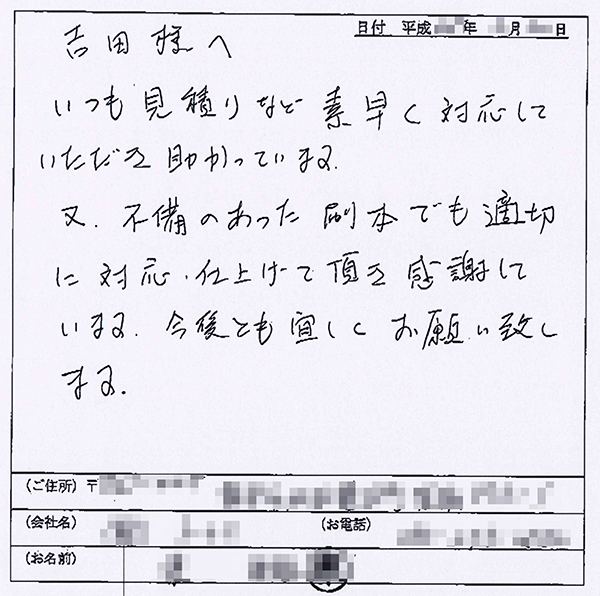 日付 平成 年 月 日
吉田様へ
いつも見積りなど素早く対応して
いただき助かっています.
又.不備のあった刷本でも適切
に対応.仕上げて頂き感謝して
います.今後とも宜しくお願い致し
ます.
(ご住所) 〒
(会社名) (お電話)
(お名前)